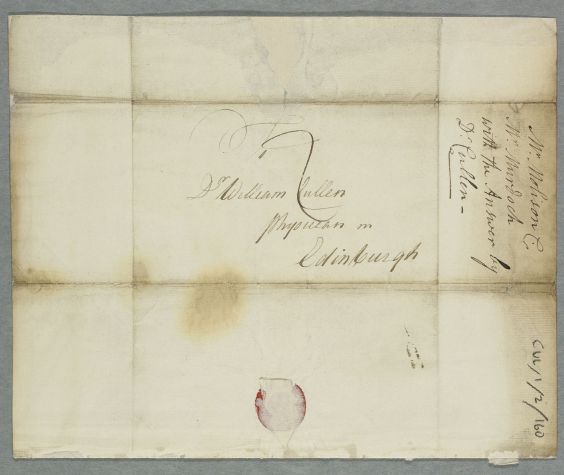 2
Dr William Cullen
Physician in
Edinburgh
Mr Molison C.
Mr Murdoch
with the Answer by
Dr Cullen -
CUL/1/2/160